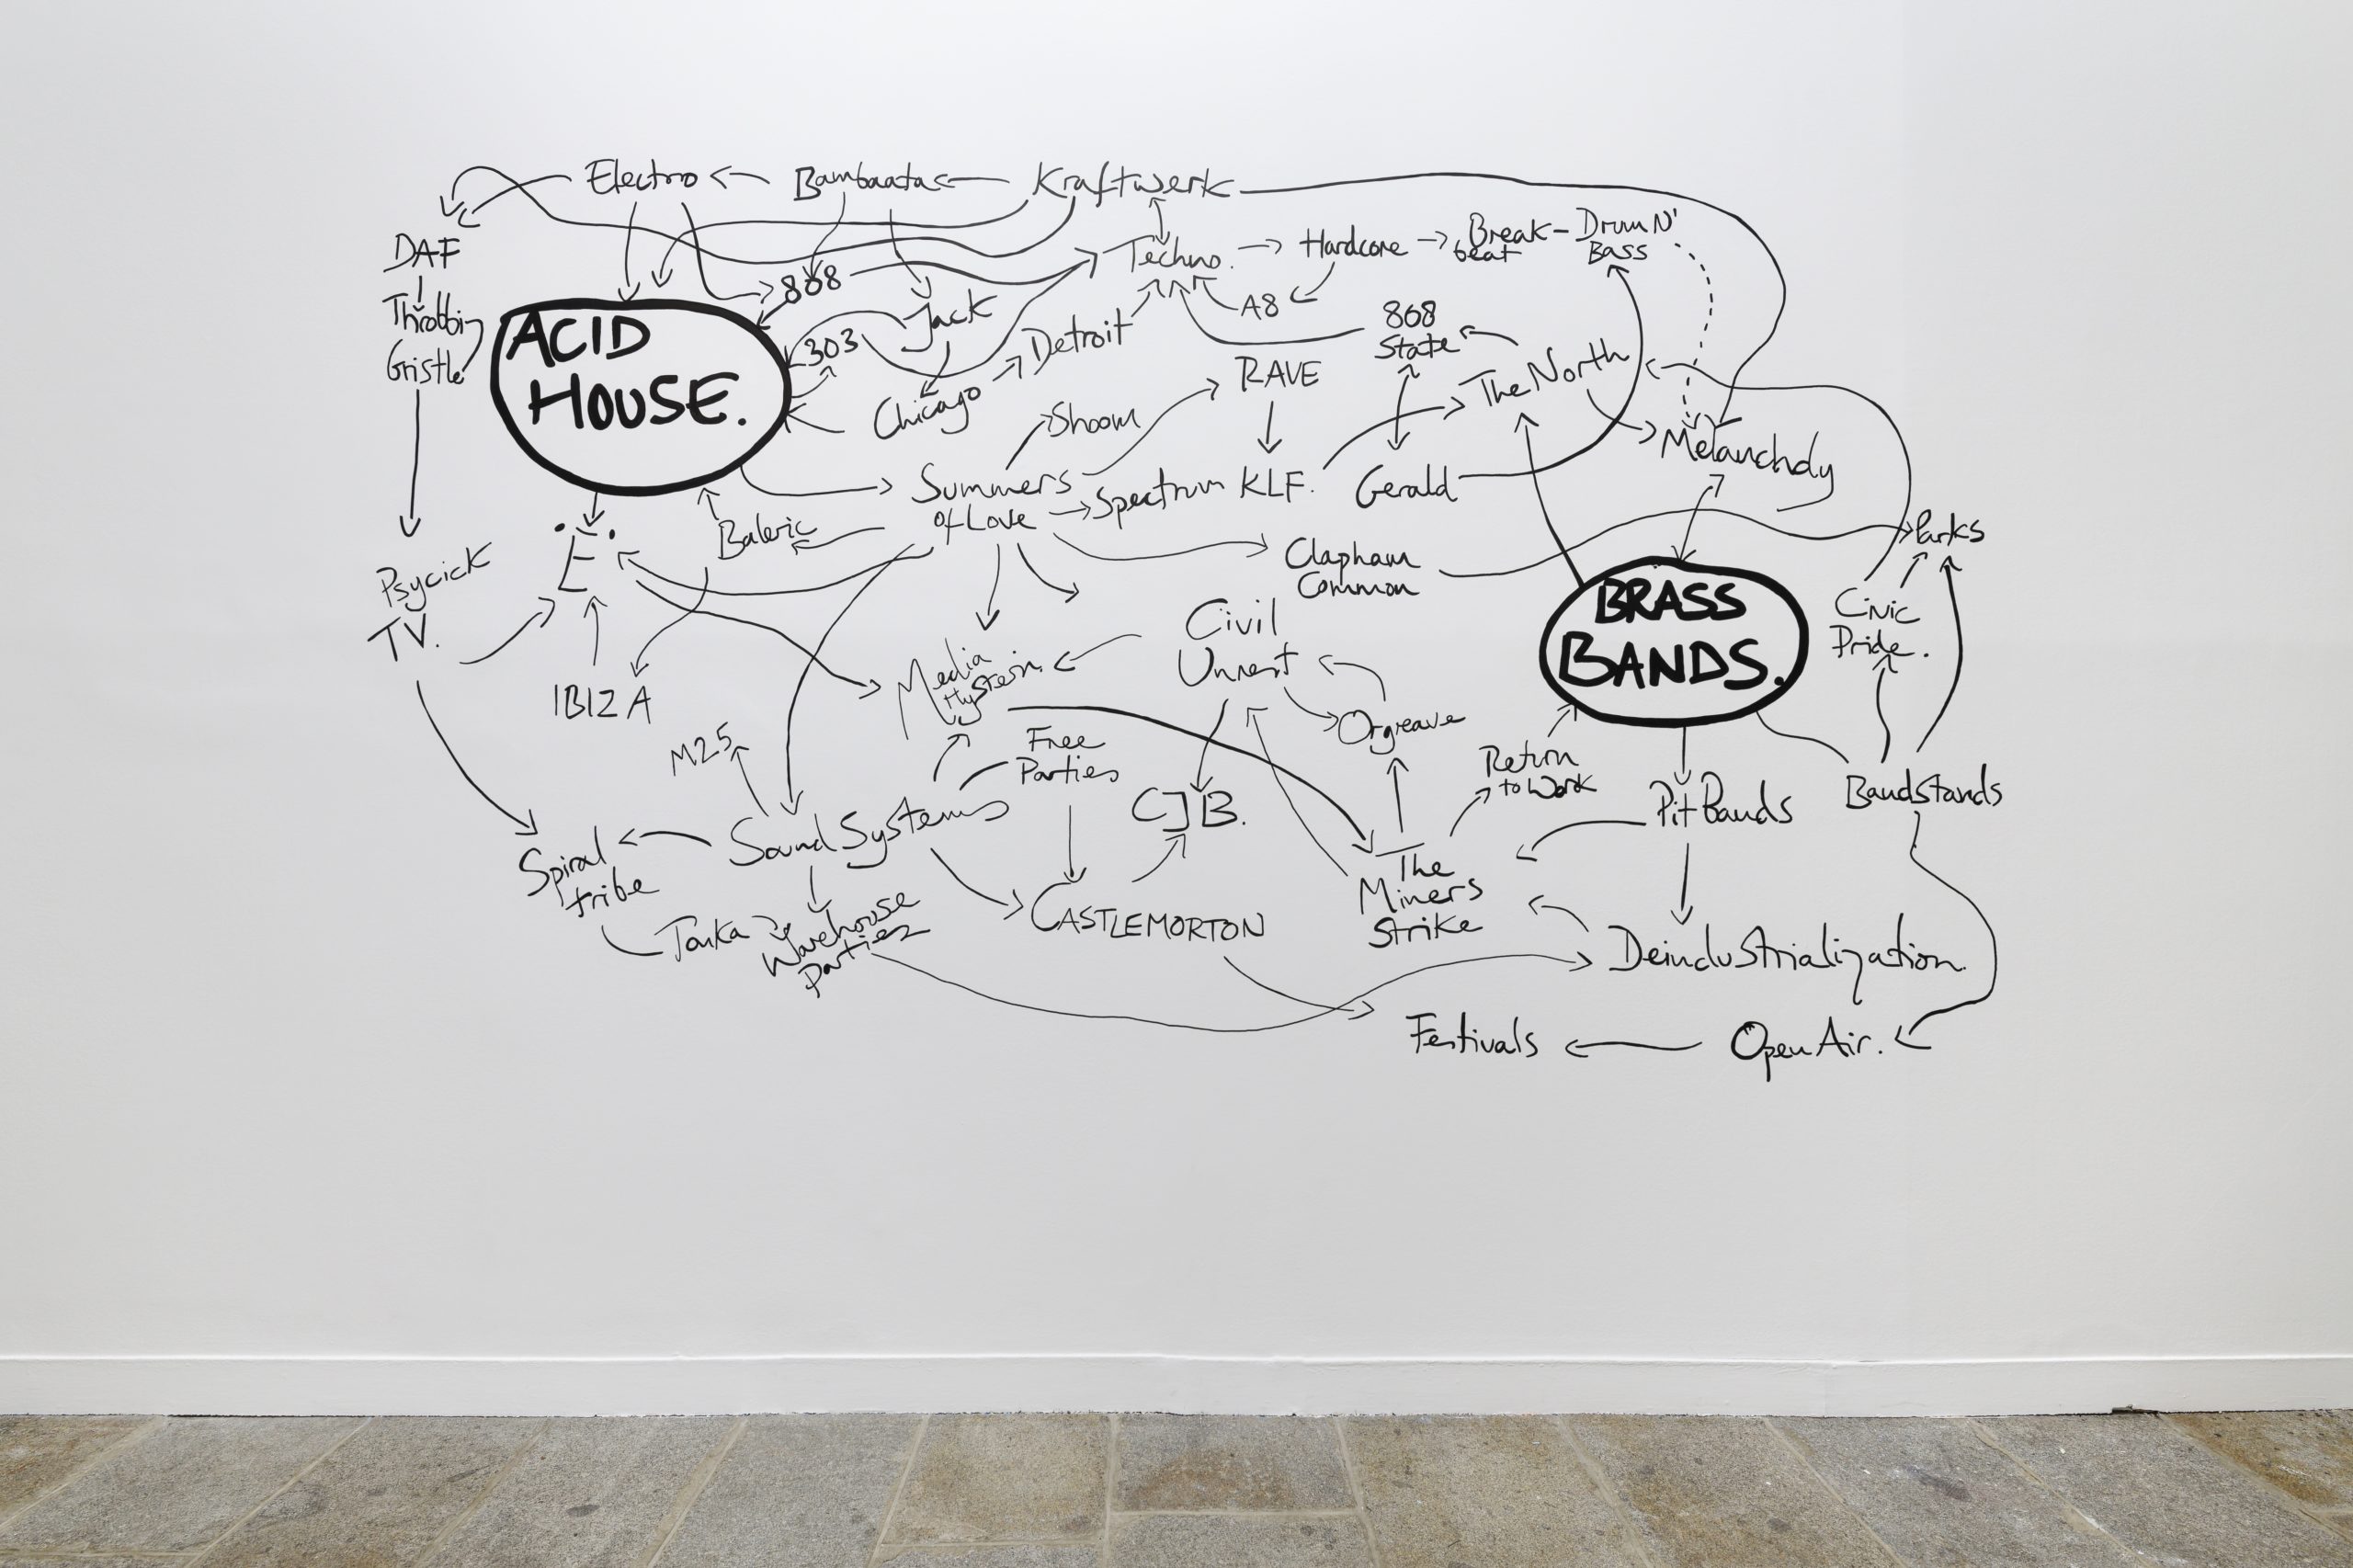 Electro
Bambaata
Kraftwerk
DAF
Throbbing
Gristle
ACID
HOUSE.
808
303
Jack
Chicago
Detroit
Techno.
Hardcore
Break-
beat
Drum N'
Bass
A8
808
State
RAVE
The North
Shoom
Summers
of Love
Spectrum
KLF.
Gerald
Melancholy
Psycick
TV.
E.
Baleric
IBIZA
Clapham
Common
Parks
BRASS
BANDS.
Civic
Pride.
Civil
Unrest
Media
Hysteria
Orgreave
M25
Free
Parties
Return
to Work
Sound Systems
CJB.
Pit Bands
Bandstands
Spiral
tribe
Tonka
Warehouse
Parties
CASTLEMORTON
The
Miners
Strike
Deindustrialization
Festivals
Open Air.